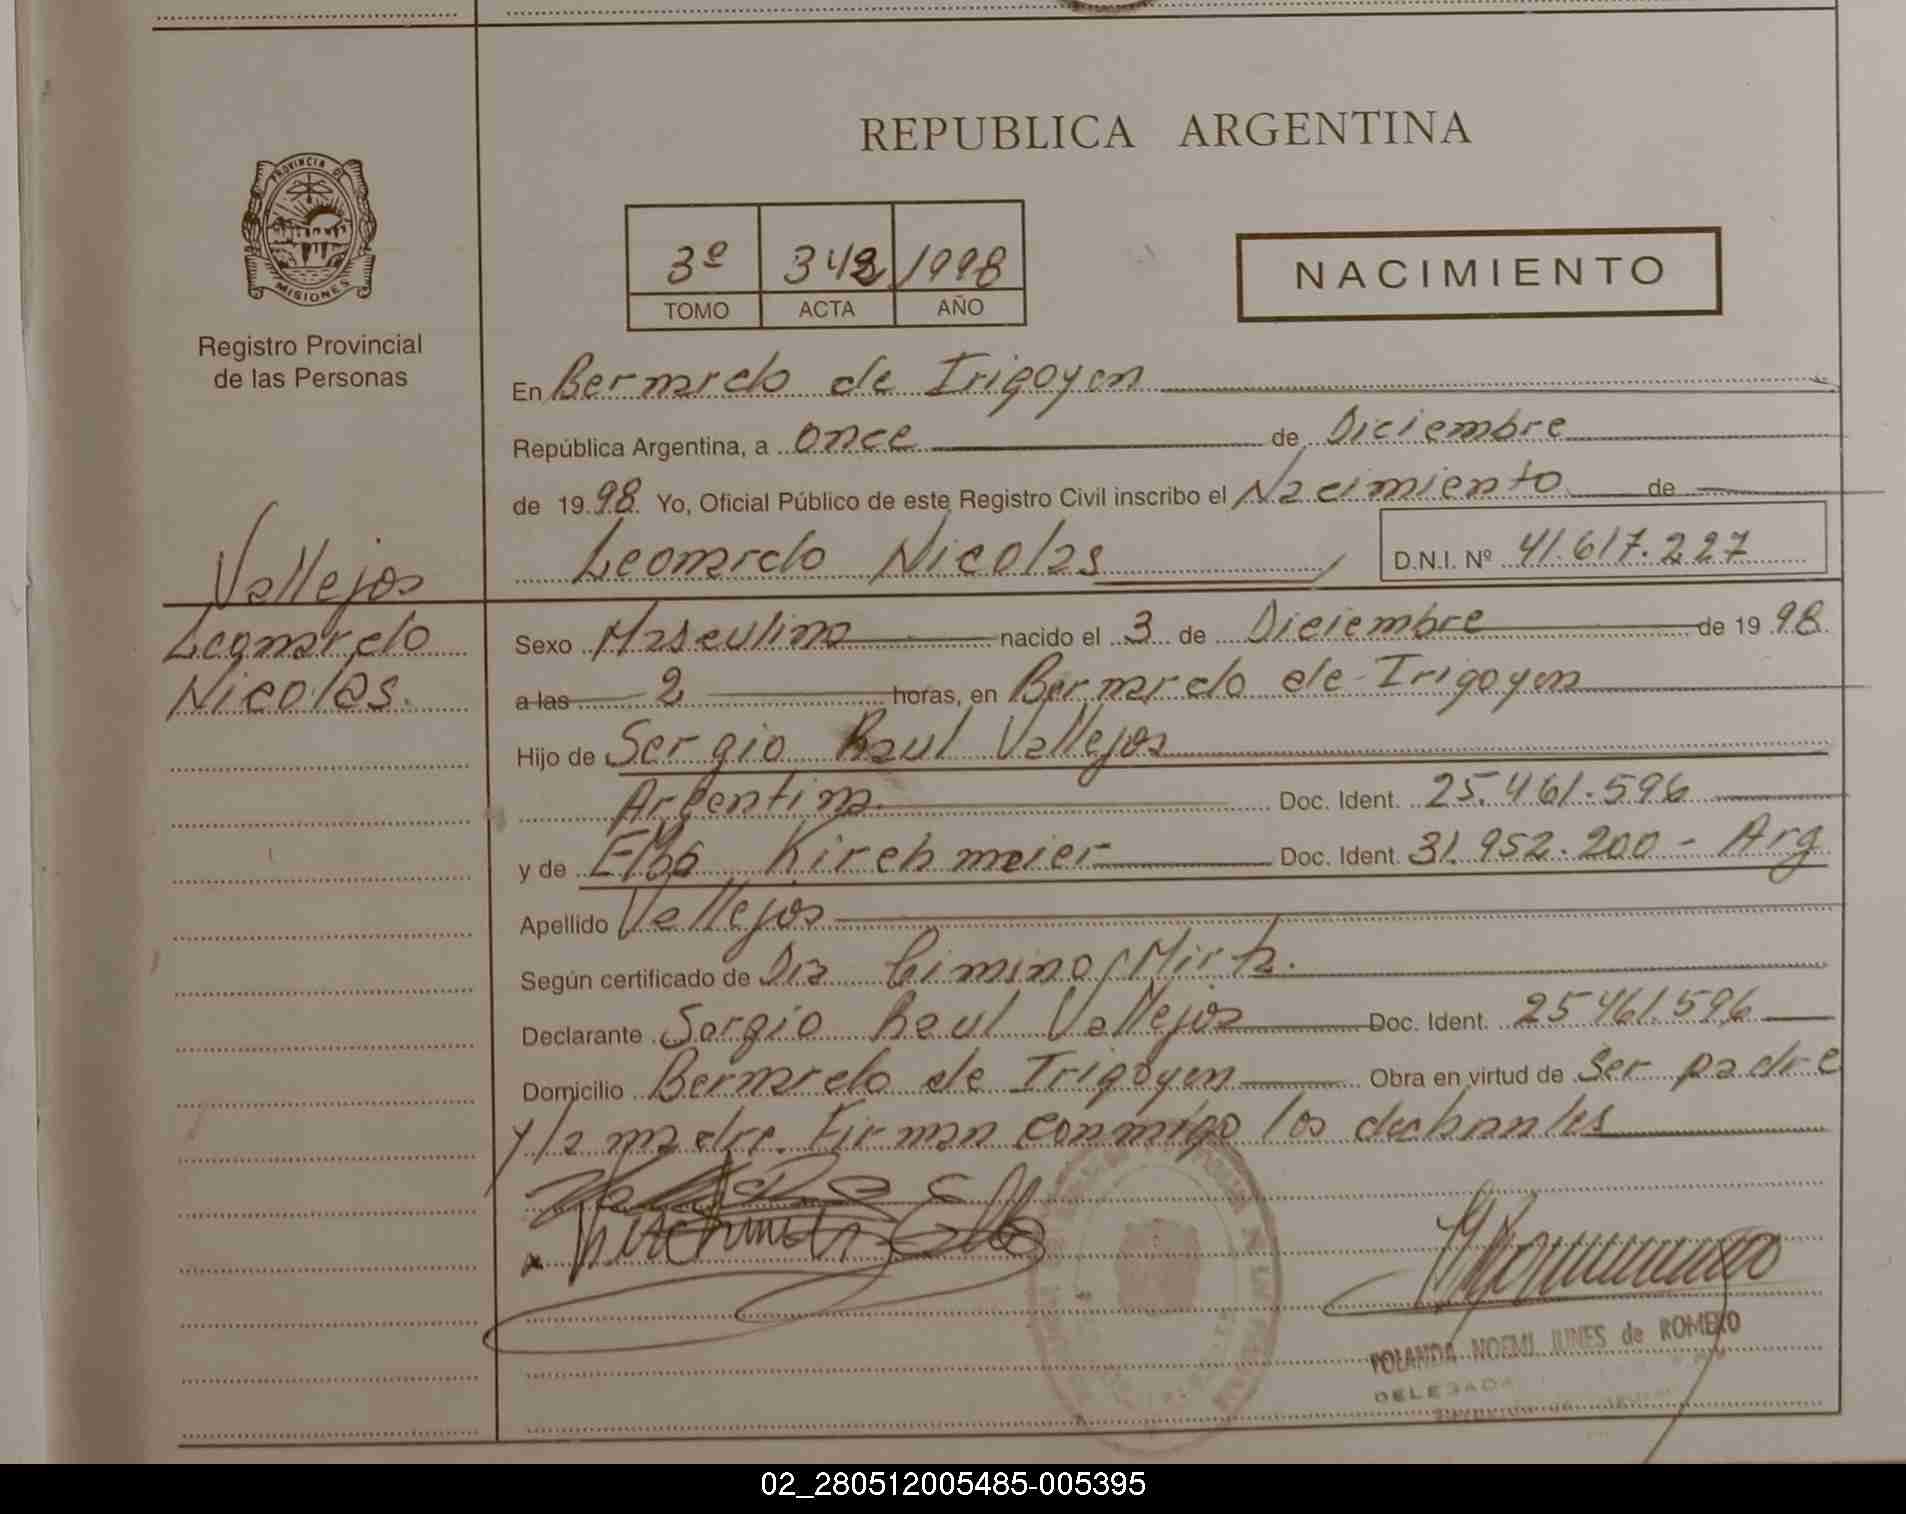 REPUBLICA ARGENTINA
PROVINCIA DE
MISIONES
Registro Provincial
de las Personas
3º 342 1998
TOMO ACTA AÑO
NACIMIENTO
En Bernardo de Irigoyen
República Argentina, a once de Diciembre
de 1998 Yo, Oficial Público de este Registro Civil inscribo el Nacimiento de
Leonardo Nicolas D.N.I. Nº 41.617.227
Vallejos
Leonardo
Nicolas.
Sexo Masculino nacido el 3 de Diciembre de 1998
a las 2 horas, en Bernardo de Irigoyen
Hijo de Sergio Raul Vallejos
Argentina. Doc. Ident. 25.461.596
y de Elba Kirchmeier Doc. Ident. 31.952.200 - Arg
Apellido Vallejos
Según certificado de Dra Cimino Mirta.
Declarante Sergio Raul Vallejos Doc. Ident. 25461.596
Domicilio Bernardo de Irigoyen Obra en virtud de Ser padre
y la madre. Firman conmigo los
YOLANDA NOEMI JUNES de ROMERO
DELEGADA
02_280512005485-005395